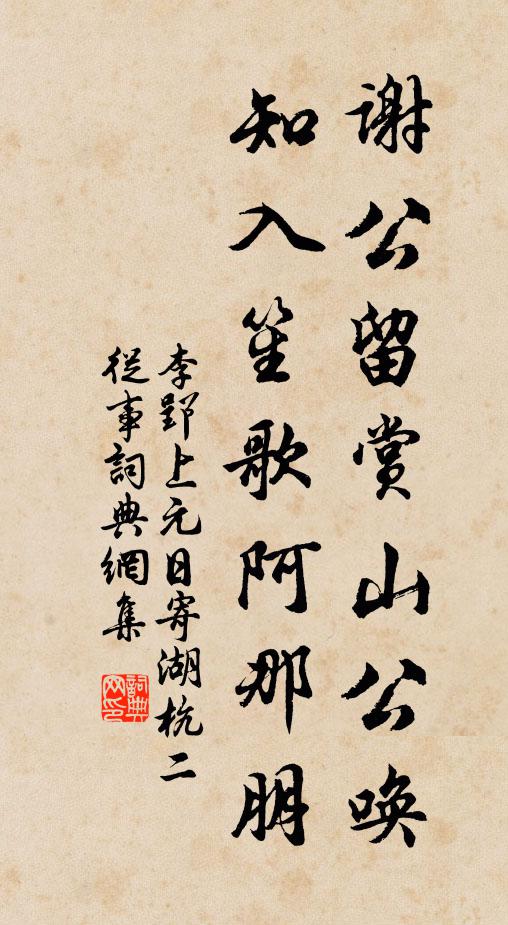 謝公留賞山公喚
知入笙歌阿那朋
李郢上元日寄湖杭二
從事詞典網集
詞典网印